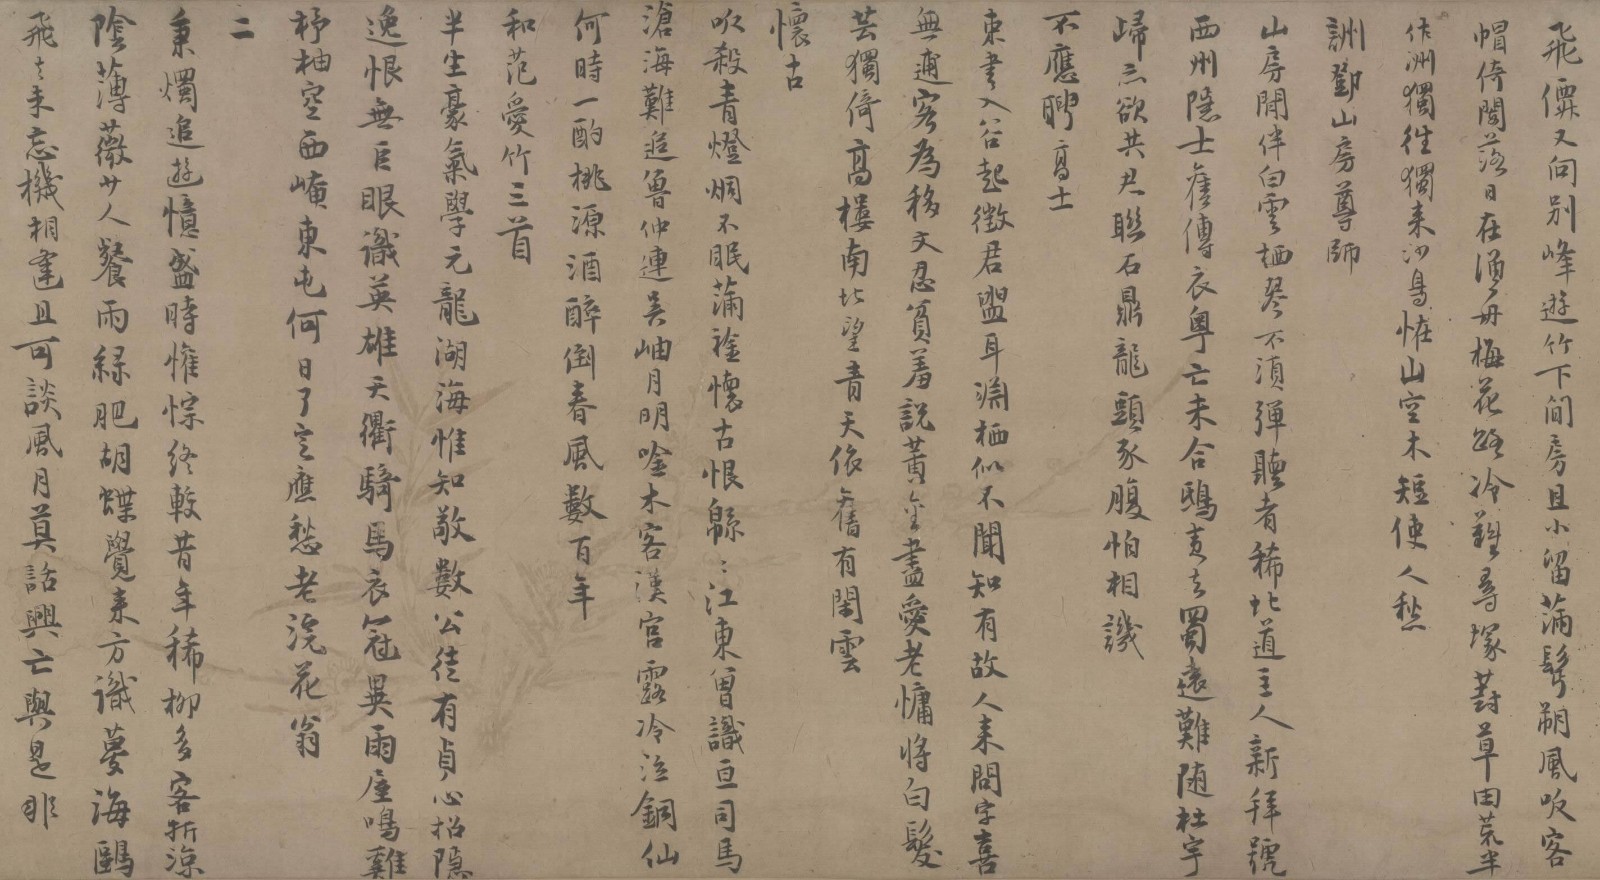 飛僊又向别峰遊竹下间房且小留蒲髩朔風吹客
帽倚閣落日在漁舟梅花路冷難尋塚葑草田荒半
作洲獨往獨来沙鳥恠山空木短使人愁
訓鄧山房尊師
山房閒伴白雲栖琴不湏彈聽者稀北道主人新拜號
西州隱士舊傳衣粤亡未合鴟夷去蜀遠難随杜宇
歸亦欲共君聯石鼎龍頭豕腹怕相譏
不應聘髙士
束書入谷起徴君盟耳淵栖似不聞知有故人来問字喜
無逋客為移文忍貧羞説黄金盡愛老慵将白髮
芸獨倚髙樓南北望青天依舊有閑雲
懷古
吹殺青燈烱不眠蒲衾懷古恨緜ミ江東曽識亘司馬
滄海難追魯仲連吴岫月明唫木客漢宫露冷泣銅仙
何時一酌桃源酒醉倒春風數百年
和范愛竹三首
半生豪氣學元龍湖海惟知敬數公徒有貞心招隱
逸恨無巨眼識英雄天衢騎馬衣冠異雨屋鳴雞
杼柚空西崦東屯何日了只應愁老浣花翁
二
秉燭追遊憶盛時懽悰終較昔年稀栁多客折凉
陰薄薇少人餐雨緑肥胡蝶覺来方識夢海鷗
飛去未忘機相逢且可談風月莫話興亡與是非